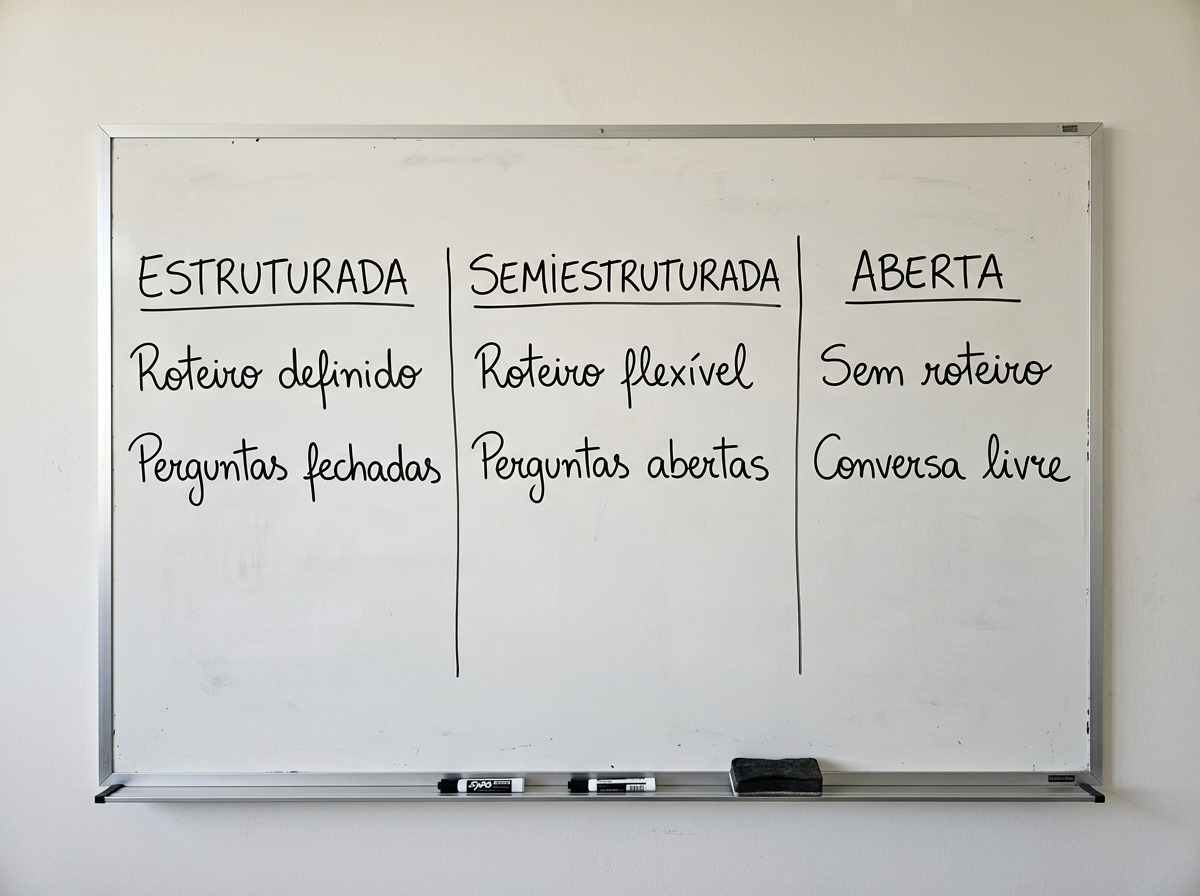 ESTRUTURADA
Roteiro definido
Perguntas fechadas
SEMIESTRUTURADA
Roteiro flexível
Perguntas abertas
ABERTA
Sem roteiro
Conversa livre
EXPO